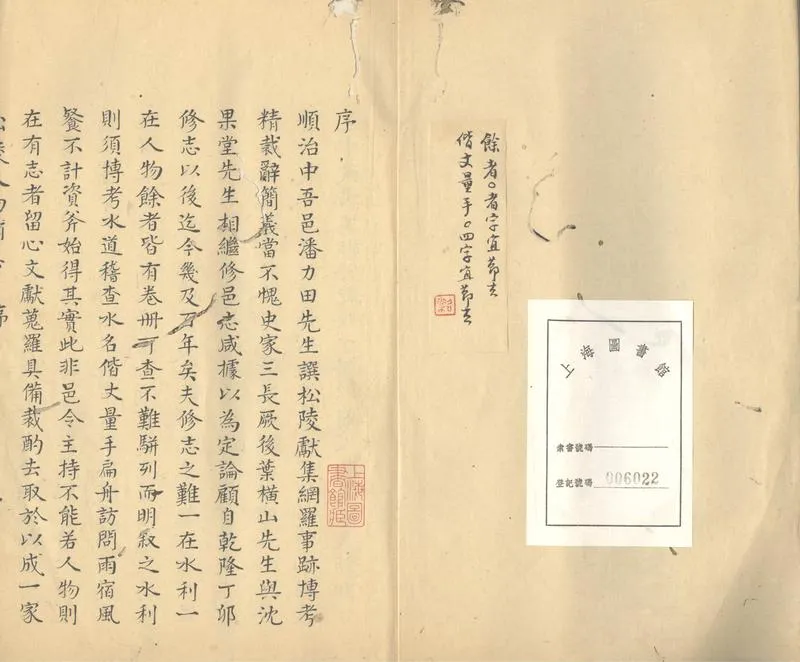 餘者。者字宜節去
偕丈量手。四字宜節去
上海圖書館
索書號碼
登記號碼 006022
序
順治中吾邑潘力田先生譔松陵獻集網羅事跡博考
精裁辭簡義當不愧史家三長厥後葉橫山先生與沈
果堂先生相繼修邑志咸據以為定論顧自乾隆丁卯
修志以後迄今幾及百年矣夫修志之難一在水利一
在人物餘者皆有卷冊可查不難駢列而明敘之水利
則須博考水道稽查水名偕丈量手扁舟訪問雨宿風
餐不計資斧始得其實此非邑令主持不能若人物則
在有志者留心文獻蒐羅具備裁酌去取於以成一家
上海圖書館藏